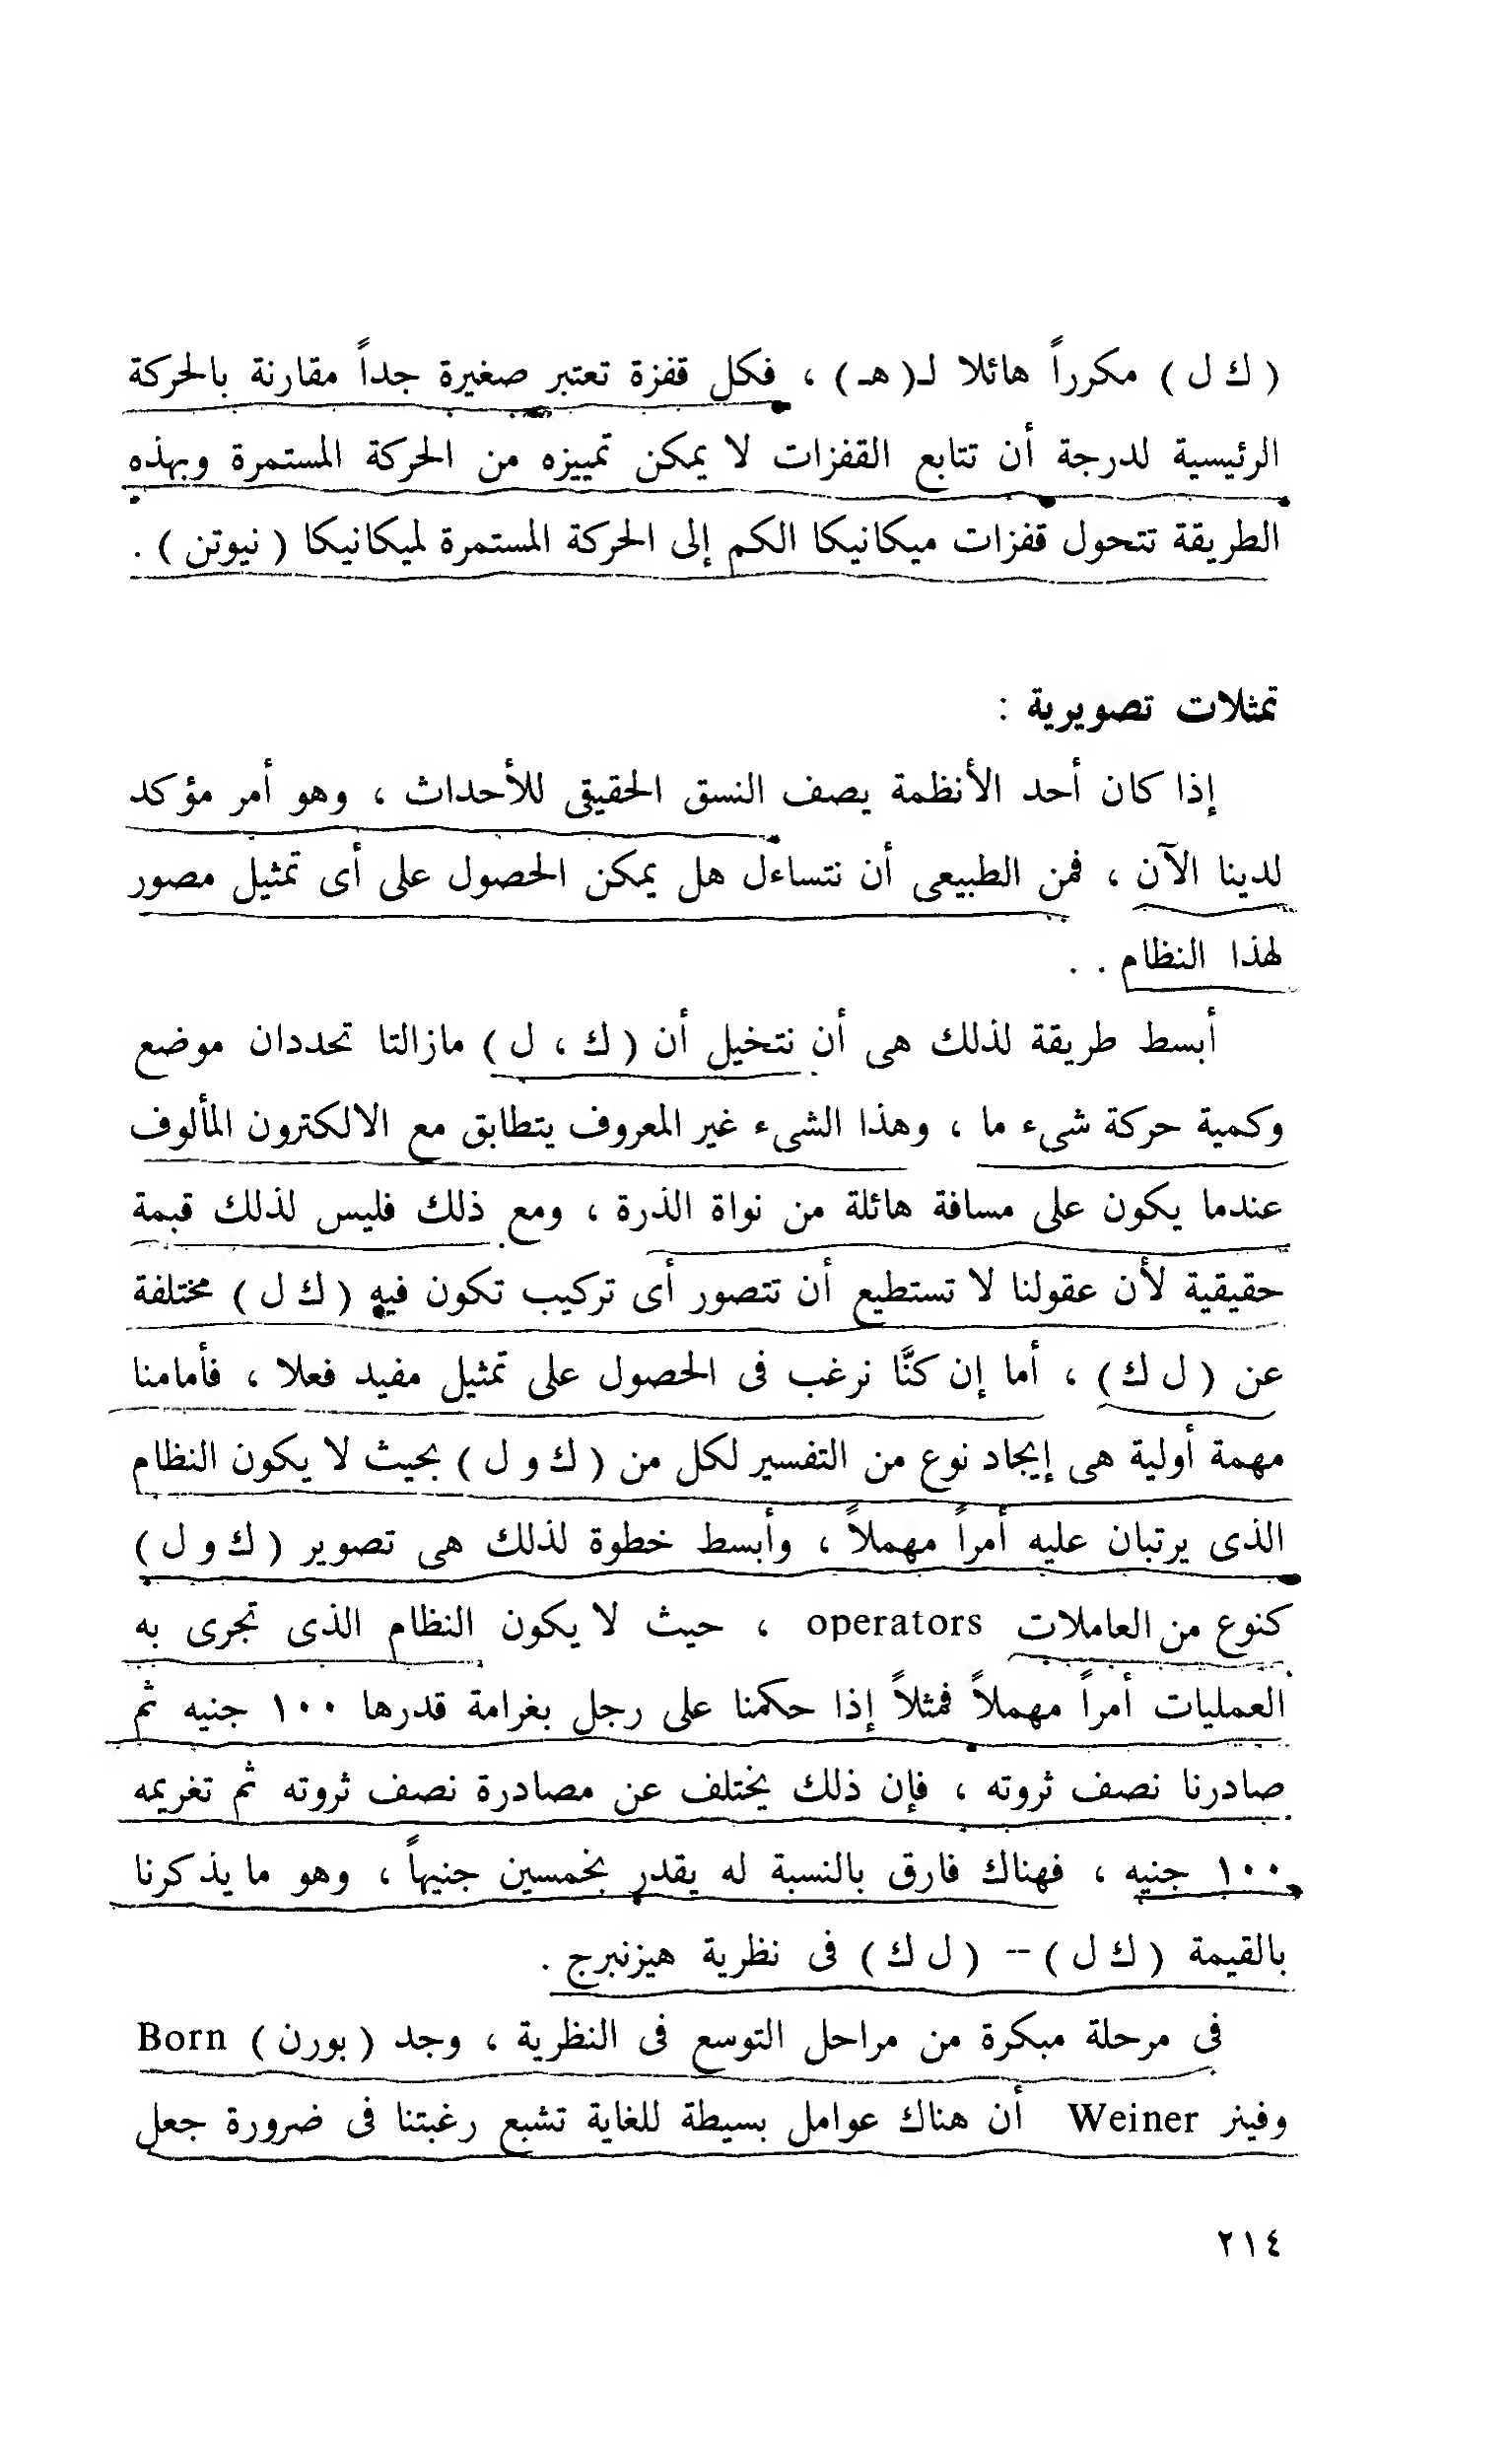 ( ك ل ) مكرراً هائلا لـ( هـ ) ، فكل قفزة تعتبر صغيرة جداً مقارنة بالحركة
الرئيسية لدرجة أن تتابع القفزات لا يمكن تمييزه من الحركة المستمرة وبهذه
الطريقة تتحول قفزات ميكانيكا الكم إلى الحركة المستمرة لميكانيكا ( نيوتن ) .
تمثلات تصويرية :
إذا كان أحد الأنظمة يصف النسق الحقيقى للأحداث ، وهو أمر مؤكد
لدينا الآن ، فمن الطبيعى أن نتساءل هل يمكن الحصول على أى تمثيل مصور
لهذا النظام . .
أبسط طريقة لذلك هى أن نتخيل أن ( ك ، ل ) مازالتا تحددان موضع
وكمية حركة شىء ما ، وهذا الشىء غير المعروف يتطابق مع الالكترون المألوف
عندما يكون على مسافة هائلة من نواة الذرة ، ومع ذلك فليس لذلك قيمة
حقيقية لأن عقولنا لا تستطيع أن تتصور أى تركيب تكون فيه ( ك ل ) مختلفة
عن ( ل ك ) ، أما إن كنَّا نرغب فى الحصول على تمثيل مفيد فعلا ، فأمامنا
مهمة أولية هى إيجاد نوع من التفسير لكل من ( ك و ل ) بحيث لا يكون النظام
الذى يرتبان عليه أمراً مهملاً ، وأبسط خطوة لذلك هى تصوير ( ك و ل )
كنوع من العاملات operators ، حيث لا يكون النظام الذى تجرى به
العمليات أمراً مهملاً فمثلاً إذا حكمنا على رجل بغرامة قدرها ١٠٠ جنيه ثم
صادرنا نصف ثروته ، فإن ذلك يختلف عن مصادرة نصف ثروته ثم تغريمه
١٠٠ جنيه ، فهناك فارق بالنسبة له يقدر بخمسين جنيهاً ، وهو ما يذكرنا
بالقيمة ( ك ل ) – ( ل ك ) فى نظرية هيزنبرج .
فى مرحلة مبكرة من مراحل التوسع فى النظرية ، وجد ( بورن ) Born
وفينر Weiner أن هناك عوامل بسيطة للغاية تشبع رغبتنا فى ضرورة جعل
٢١٤